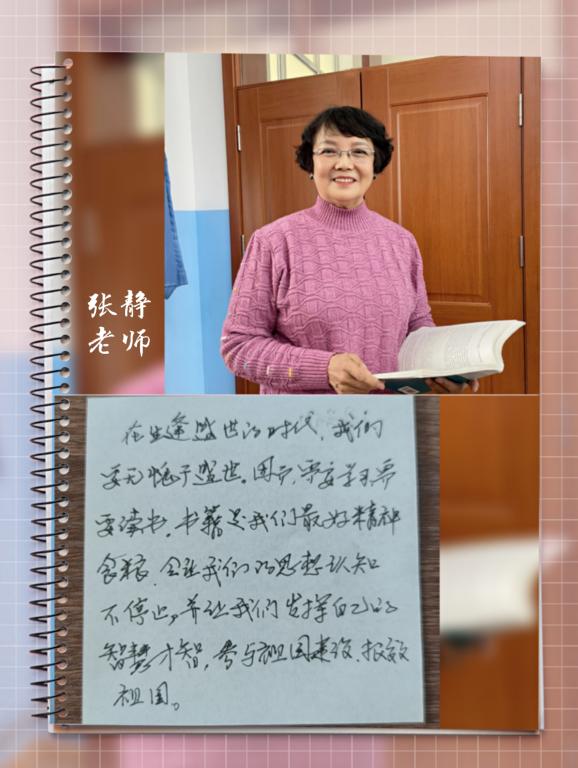 张静
老师
在生逢盛世的时代,我们
要无愧于盛世。因此,需要学习需
要读书。书籍是我们最好精神
食粮,会让我们的思想认知
不停止,并让我们发挥自己的
智慧才智,参与祖国建设,报效
祖国。